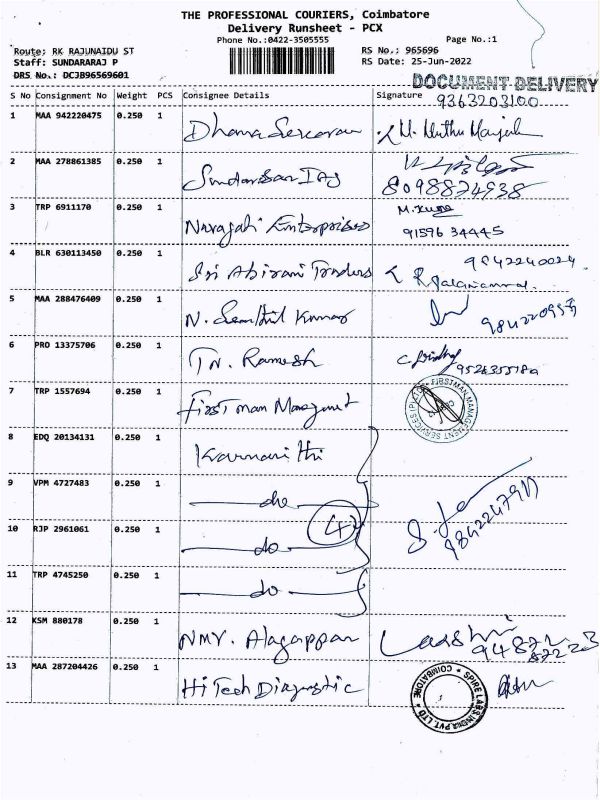 THE PROFESSIONAL COURIERS, Coimbatore
Delivery Runsheet - PCX
Phone No.:0422-3505555
Page No.:1
Route: RK RAJUNAIDU ST
RS No.: 965696
Staff: SUNDARARAJ P
RS Date: 25-Jun-2022
DRS No.: DCJB96569601
DOCUMENT DELIVERY
S No Consignment No Weight PCS Consignee Details Signature 9363203100
1 MAA 942220475 0.250 1 M. Muthu
2 MAA 278861385 0.250 1 Sundarsan IAS 8098824938
3 TRP 6911170 0.250 1 Navagati Enterprises M.
91596 34445
4 BLR 630113450 0.250 1 Sri Abirami Traders 9842240024
5 MAA 288476409 0.250 1 N. Senthil Kumar
6 PRO 13375706 0.250 1 TN. Ramesh
7 TRP 1557694 0.250 1 First man Managment
FIRSTMAN MANAGEMENT SERVICES (P) LTD
8 EDQ 20134131 0.250 1 Karunanithi
9 VPM 4727483 0.250 1 do
(4)
10 RJP 2961061 0.250 1 do
11 TRP 4745250 0.250 1 do
12 KSM 880178 0.250 1 NMR. Alagappan
94872
87223
13 MAA 287204426 0.250 1 Hi Tech Diagnostic
SPIRE LABS INDIA PVT. LTD COIMBATORE